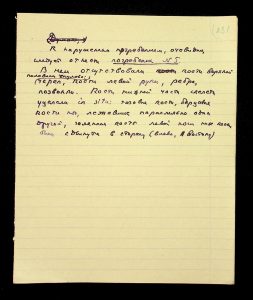 К нарушенным погребениям, очевидно,
следует отнести погребение N I.
В нем отсутствовали кости верхней
половины туловища:
череп, кости левой руки, ребра,
позвонки. Кости нижней части скелета
уцелели in situ: тазовые кости, бедровые
кости ног, лежавшие параллельно одна
другой, голени кости левой ноги
были сдвинуты в сторону (влево, к востоку)